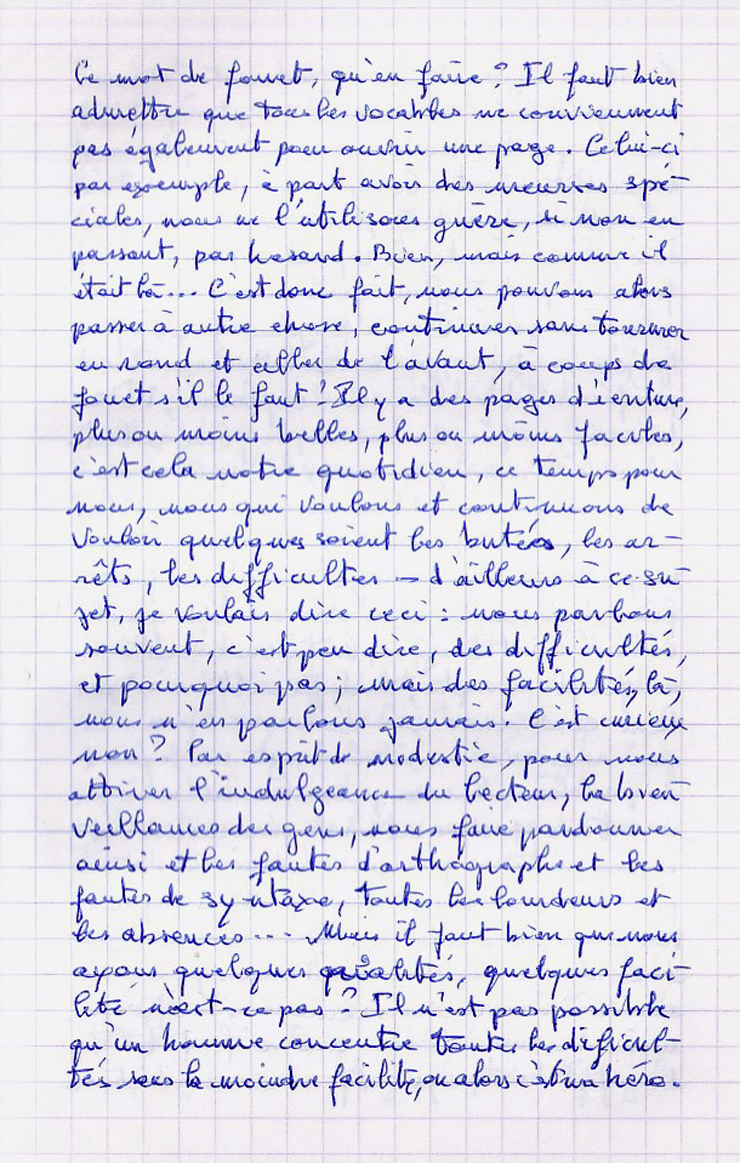 Ce mot de fouet, qu'en faire ? Il faut bien
admettre que tous les vocables ne conviennent
pas également pour ouvrir une page. Celui-ci
par exemple, à part avoir des mœurses spé-
ciales, nous ne l'utilisons guère, si non en
passant, par hasard. Bien, mais comme il
était là... C'est donc fait, nous pouvons alors
passer à autre chose, continuer sans tourner
en rond et aller de l'avant, à coups de
fouet s'il le faut ! Il y a des pages d'écriture,
plus ou moins belles, plus ou moins faciles,
c'est cela notre quotidien, ce temps pour
nous, nous qui voulons et continuons de
vouloir quelques soient les butées, les ar-
rêts, les difficultés — d'ailleurs à ce su-
jet, je voulais dire ceci : nous parlons
souvent, c'est peu dire, des difficultés,
et pourquoi pas ; mais des facilités, là,
nous n'en parlons jamais. C'est curieux
non ? Par esprit de modestie, pour nous
attirer l'indulgeance du lecteur, la bien
veillances des gens, nous faire pardonner
ainsi et les fautes d'orthographe et les
fautes de syntaxe, toutes les lourdeurs et
les absences... Mais il faut bien que nous
ayons quelques qualités, quelques faci-
lité n'est-ce pas ? Il n'est pas possible
qu'un homme concentre toutes les difficul-
tés sans la moindre facilité, ou alors c'est un héro.